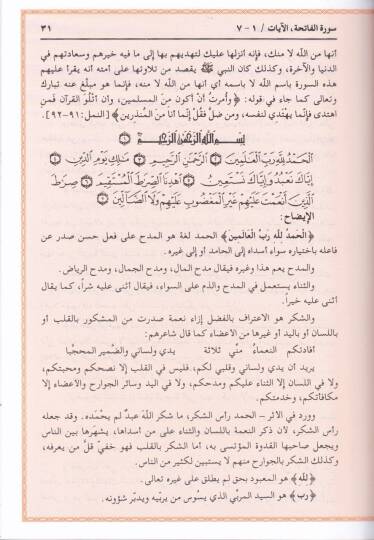 سورة الفاتحة، الآيات / ١ - ٧ ٣١
أنها من الله لا منك، فإنه أنزلها عليك لتهديهم بها إلى ما فيه خيرهم وسعادتهم في
الدنيا والآخرة، وكذلك كان النبي ﷺ يقصد من تلاوتها على أمته أنه يقرأ عليهم
هذه السورة باسم الله لا باسمه أي أنها من الله لا منه، فإنما هو مبلّغ عنه تبارك
وتعالى كما جاء في قوله: ﴿وأمرتُ أنْ أكون منَ المسلمين، وان أتْلُوَ القرآن فَمن
اهتدى فإنّما يهْتَدِي لنفسه، ومن ضلّ فقُلْ إنّما أنا منَ المنذِرين﴾ [النمل: ٩١-٩٢].
بِسْمِ اللَّهِ الرَّحْمَٰنِ الرَّحِيمِ ١
الْحَمْدُ لِلَّهِ رَبِّ الْعَالَمِينَ ٢ الرَّحْمَٰنِ الرَّحِيمِ ٣ مَالِكِ يَوْمِ الدِّينِ ٤
إِيَّاكَ نَعْبُدُ وَإِيَّاكَ نَسْتَعِينُ ٥ اهْدِنَا الصِّرَاطَ الْمُسْتَقِيمَ ٦ صِرَاطَ
الَّذِينَ أَنْعَمْتَ عَلَيْهِمْ غَيْرِ الْمَغْضُوبِ عَلَيْهِمْ وَلَا الضَّالِّينَ ٧
الإيضاح:
﴿الْحَمدُ للهِ ربِّ العالَمِين﴾ الحمد لغة هو المدح على فعل حسن صدر عن
فاعله باختياره سواء أسداه إلى الحامد أو إلى غيره.
والمدح يعم هذا وغيره فيقال مدح المال، ومدح الجمال، ومدح الرياض.
والثناء يستعمل في المدح والذم على السواء، فيقال أثنى عليه شراً، كما يقال
أثنى عليه خيراً.
والشكر هو الاعتراف بالفضل إزاء نعمة صدرت من المشكور بالقلب أو
باللسان أو باليد أو غيرها من الأعضاء كما قال شاعرهم:
أفادتكم النعماءُ منّي ثلاثة يدي ولساني والضّمير المحجّبا
يريد أن يدي ولساني وقلبي لكم، فليس في القلب إلا نصحكم ومحبتكم،
ولا في اللسان إلا الثناء عليكم ومدحكم، ولا في اليد وسائر الجوارح والأعضاء إلا
مكافأتكم، وخدمتكم.
وورد في الأثر - الحمد رأس الشكر، ما شكر اللّهَ عبدٌ لم يحْمَده. وقد جعله
رأس الشكر، لأن ذكر النعمة باللسان والثناء على من أسداها، يشهرَها بين الناس
ويجعل صاحبها القدوة المؤتسى به، أما الشكر بالقلب فهو خفيّ قلّ من يعرفه،
وكذلك الشكر بالجوارح منهم لا يستبين لكثير من الناس.
﴿للّه﴾ هو المعبود بحق لم يطلق على غيره تعالى.
﴿رب﴾ هو السيد المربّي الذي يسُوس من يربّيه ويدبّر شؤونه.